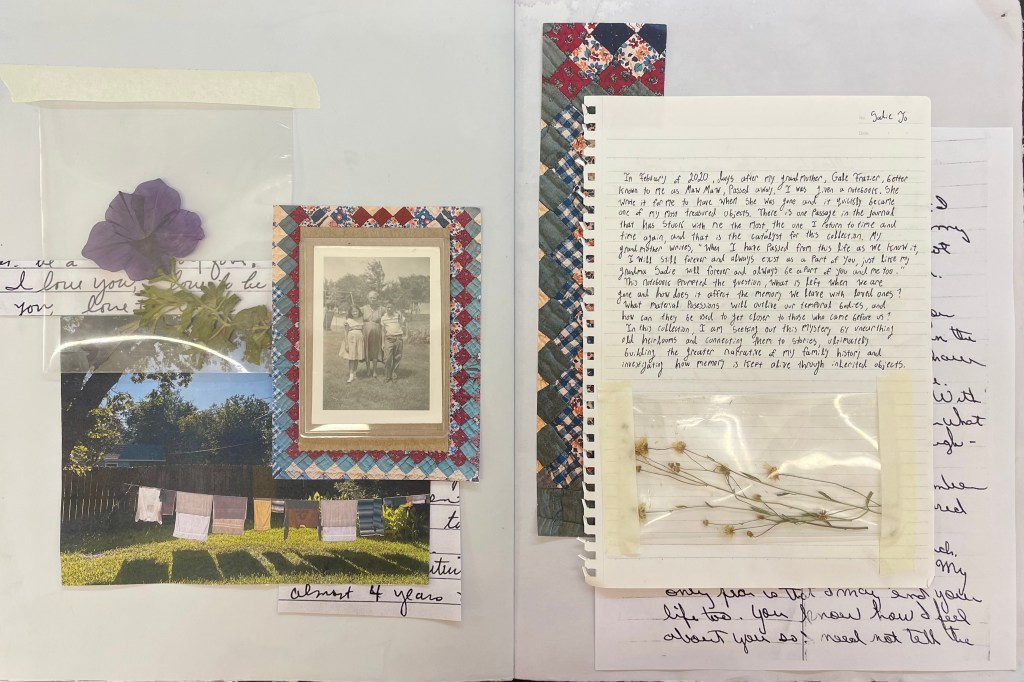 I love you
you love
almost 4 years
Sadie Jo
In February of 2020, days after my grandmother, Gale Frazier, better
known to me as Maw Maw, Passed away, I was given a notebook. She
wrote it for me to have when she was gone and it quickly became
one of my most treasured objects. There is one passage in the journal
that has stuck with me the most, the one I return to time and
time again, and that is the catalyst for this collection. My
grandmother writes, "When I have passed from this life as we know it,
I will still forever and always exist as a part of you, just like my
grandma Sadie will forever and always be a part of you and me too."
This notebook prompted the question, what is left when we are
gone and how does it affect the memory we leave with loved ones?
What material Possessions will outlive our temporal bodies, and
how can they be used to get closer to those who came before us?
In this collection, I am seeking out this mystery by unearthing
old heirlooms and connecting them to stories, ultimately
building the greater narrative of my family history and
investigating how memory is kept alive through inherited objects.
in the
With
what
red
My
only fear is that I may end your
life too. You know how I feel
about you so I need not tell the